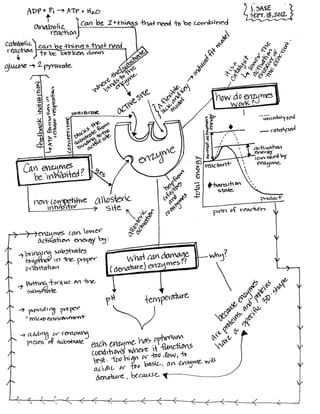 ADP + Pi → ATP + H₂O
anabolic reaction
can be 2+things that need to be combined
I. SAVE
SEPT. 18, 2012
catabolic reaction
can be things that need to be broken down
glucose → 2 pyruvate
where the substrate
binds the
enzyme
active site
a flexible
lock & key
model
induced fit model
it is a
catalyst
lower the
energy of
the reaction
how do enzymes
work?
feedback inhibitors
ATP
cellular respiration
competitive
inhibitor
blocks the
substrate from
binding to
the site
enzyme
Can enzymes
be inhibited?
yes
non-competitive
inhibitor
allosteric
site
allosteric
activation
help from
cofactors
and
coenzymes
total energy
uncatalyzed
catalyzed
activation
energy
lowered by
enzyme
reactant
transition
state
product
path of reaction
→ enzymes can lower
activation energy by:
→ bringing substrates
together in the proper
orientation
→ putting torque on the
substrate
→ providing proper
micro environment
→ adding or removing
pieces of substrate
What can damage
(denature) enzymes??
why?
because enzymes
are proteins, and proteins
have a specific 3D shape
pH
temperature
each enzyme has optimum
conditions where it functions
best. Too high or too low, to
acidic or too basic, an enzyme will
denature, because